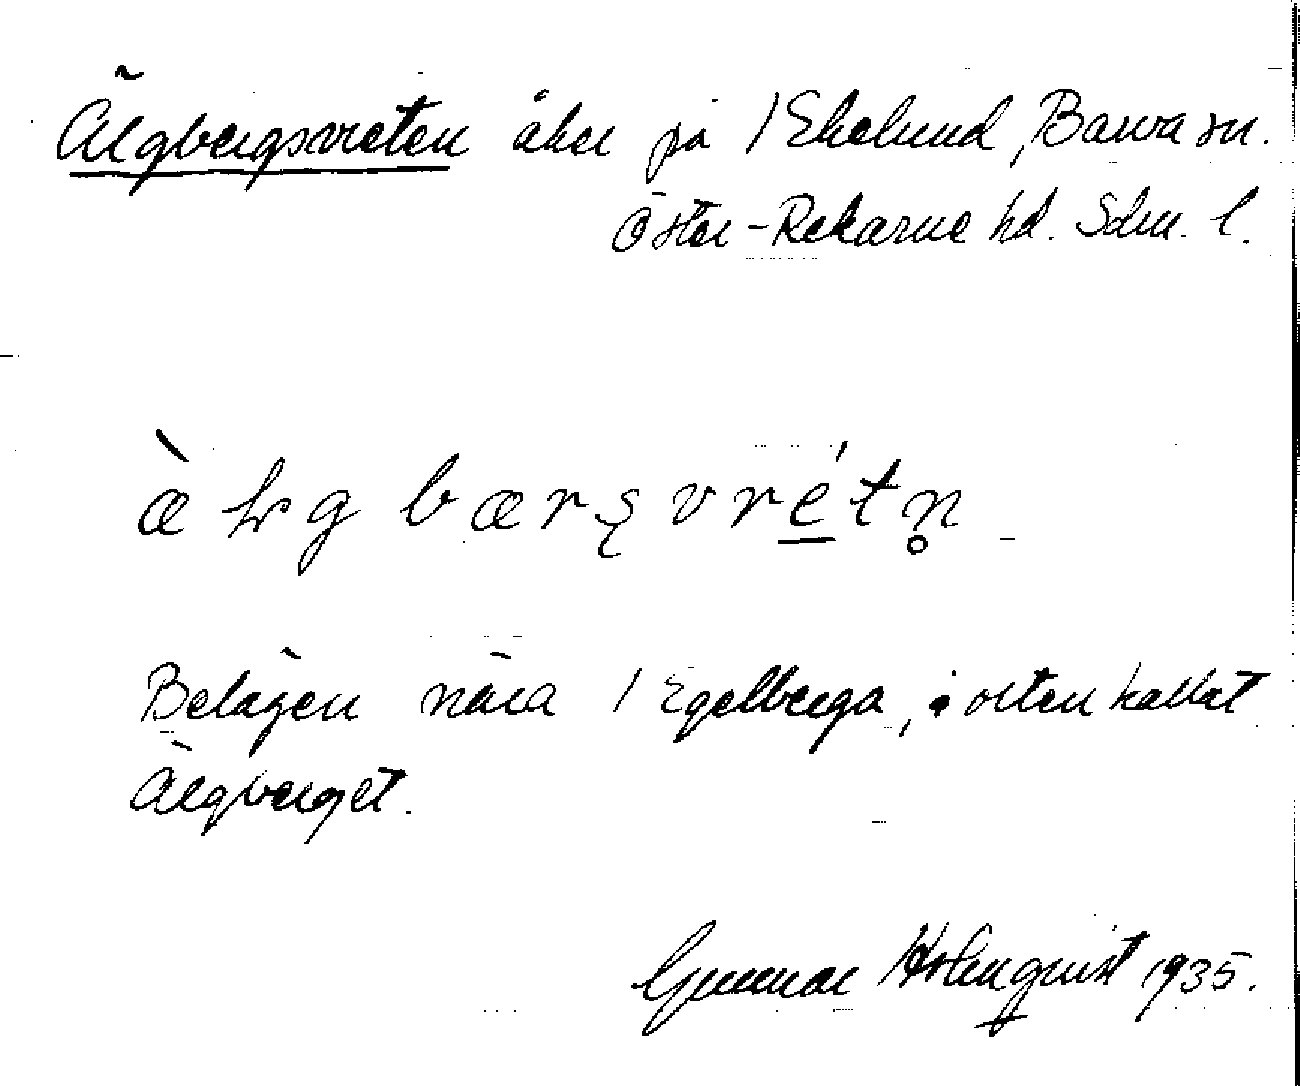 Älgbergsvreten åker på /Ekelund, Barva sn.
Öster-Rekarne hd. Sdm. l.
æ̀ lg bærs̨ vrét n̥
Belägen nära /Egelberga, i orten kallat
Älgberget.
Gunnar Holmquist 1935.